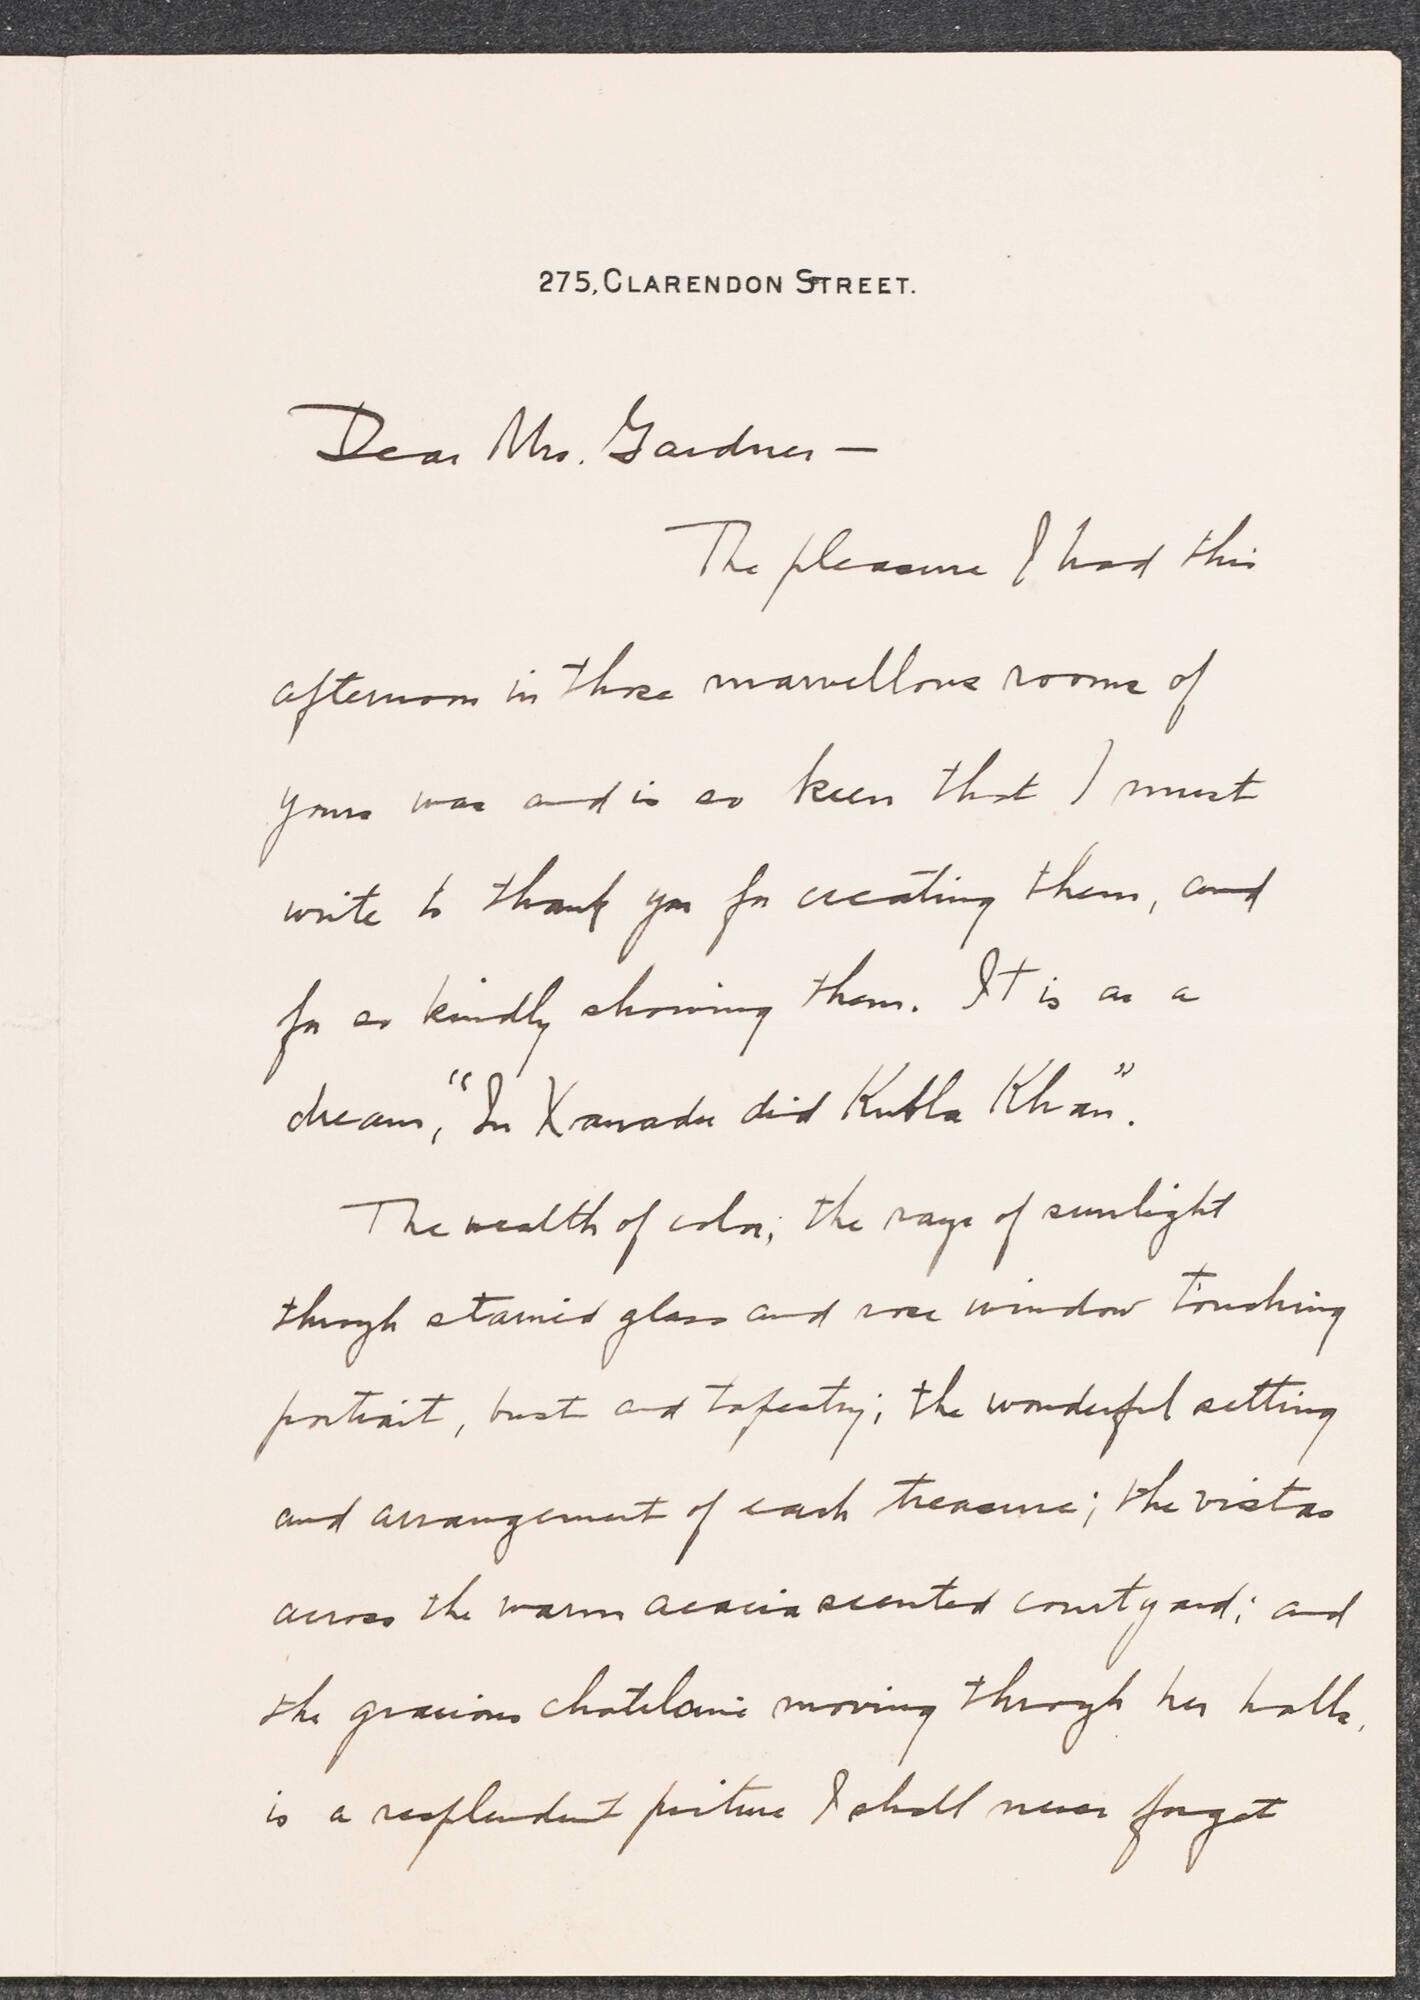 275, CLARENDON STREET.
Dear Mrs. Gardner —
The pleasure I had this
afternoon in those marvellous rooms of
yours was and is so keen that I must
write to thank you for creating them, and
for so kindly showing them. It is as a
dream, "In Xanadu did Kubla Khan".
The wealth of color; the rays of sunlight
through stained glass and rose window touching
portrait, bust and tapestry; the wonderful setting
and arrangement of each treasure; the vistas
across the warm acacia scented courtyard; and
the gracious chatelaine moving through her halls,
is a resplendent picture I shall never forget